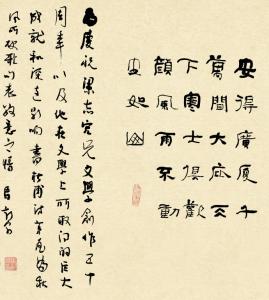 安得廣厦千
萬間大庇天
下寒士俱歡
顔風雨不動
安如山
慶祝梁志宏兄文學創作五十
周年以及他在文學上所取得的巨大
成就和深遠影響書杜甫詩茅屋為秋
風所破歌句表敬意之情